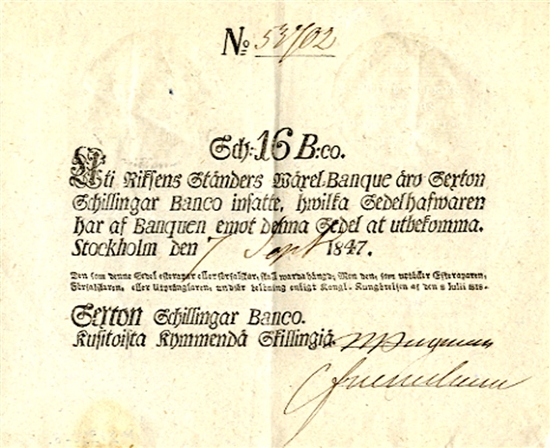 No 53702
Sch: 16 B:co.
Uti Riksens Ständers Wäxel-Banque äro Sexton
Schillingar Banco insatte, hwilka Sedelhafwaren
har af Banquen emot denna Sedel at utbekomma.
Stockholm den 7 Sept 1847.
Den som denne Sedel efterapar eller förfalskar, skall warda hängd; Men den, som uptäcker Efteraparen,
Förfalskaren, eller Utprånglaren, undfår belöning enligt Kongl. Kungörelsen af den
Sexton Schillingar Banco.
Kusitoista Kymmendä Skillingiä.